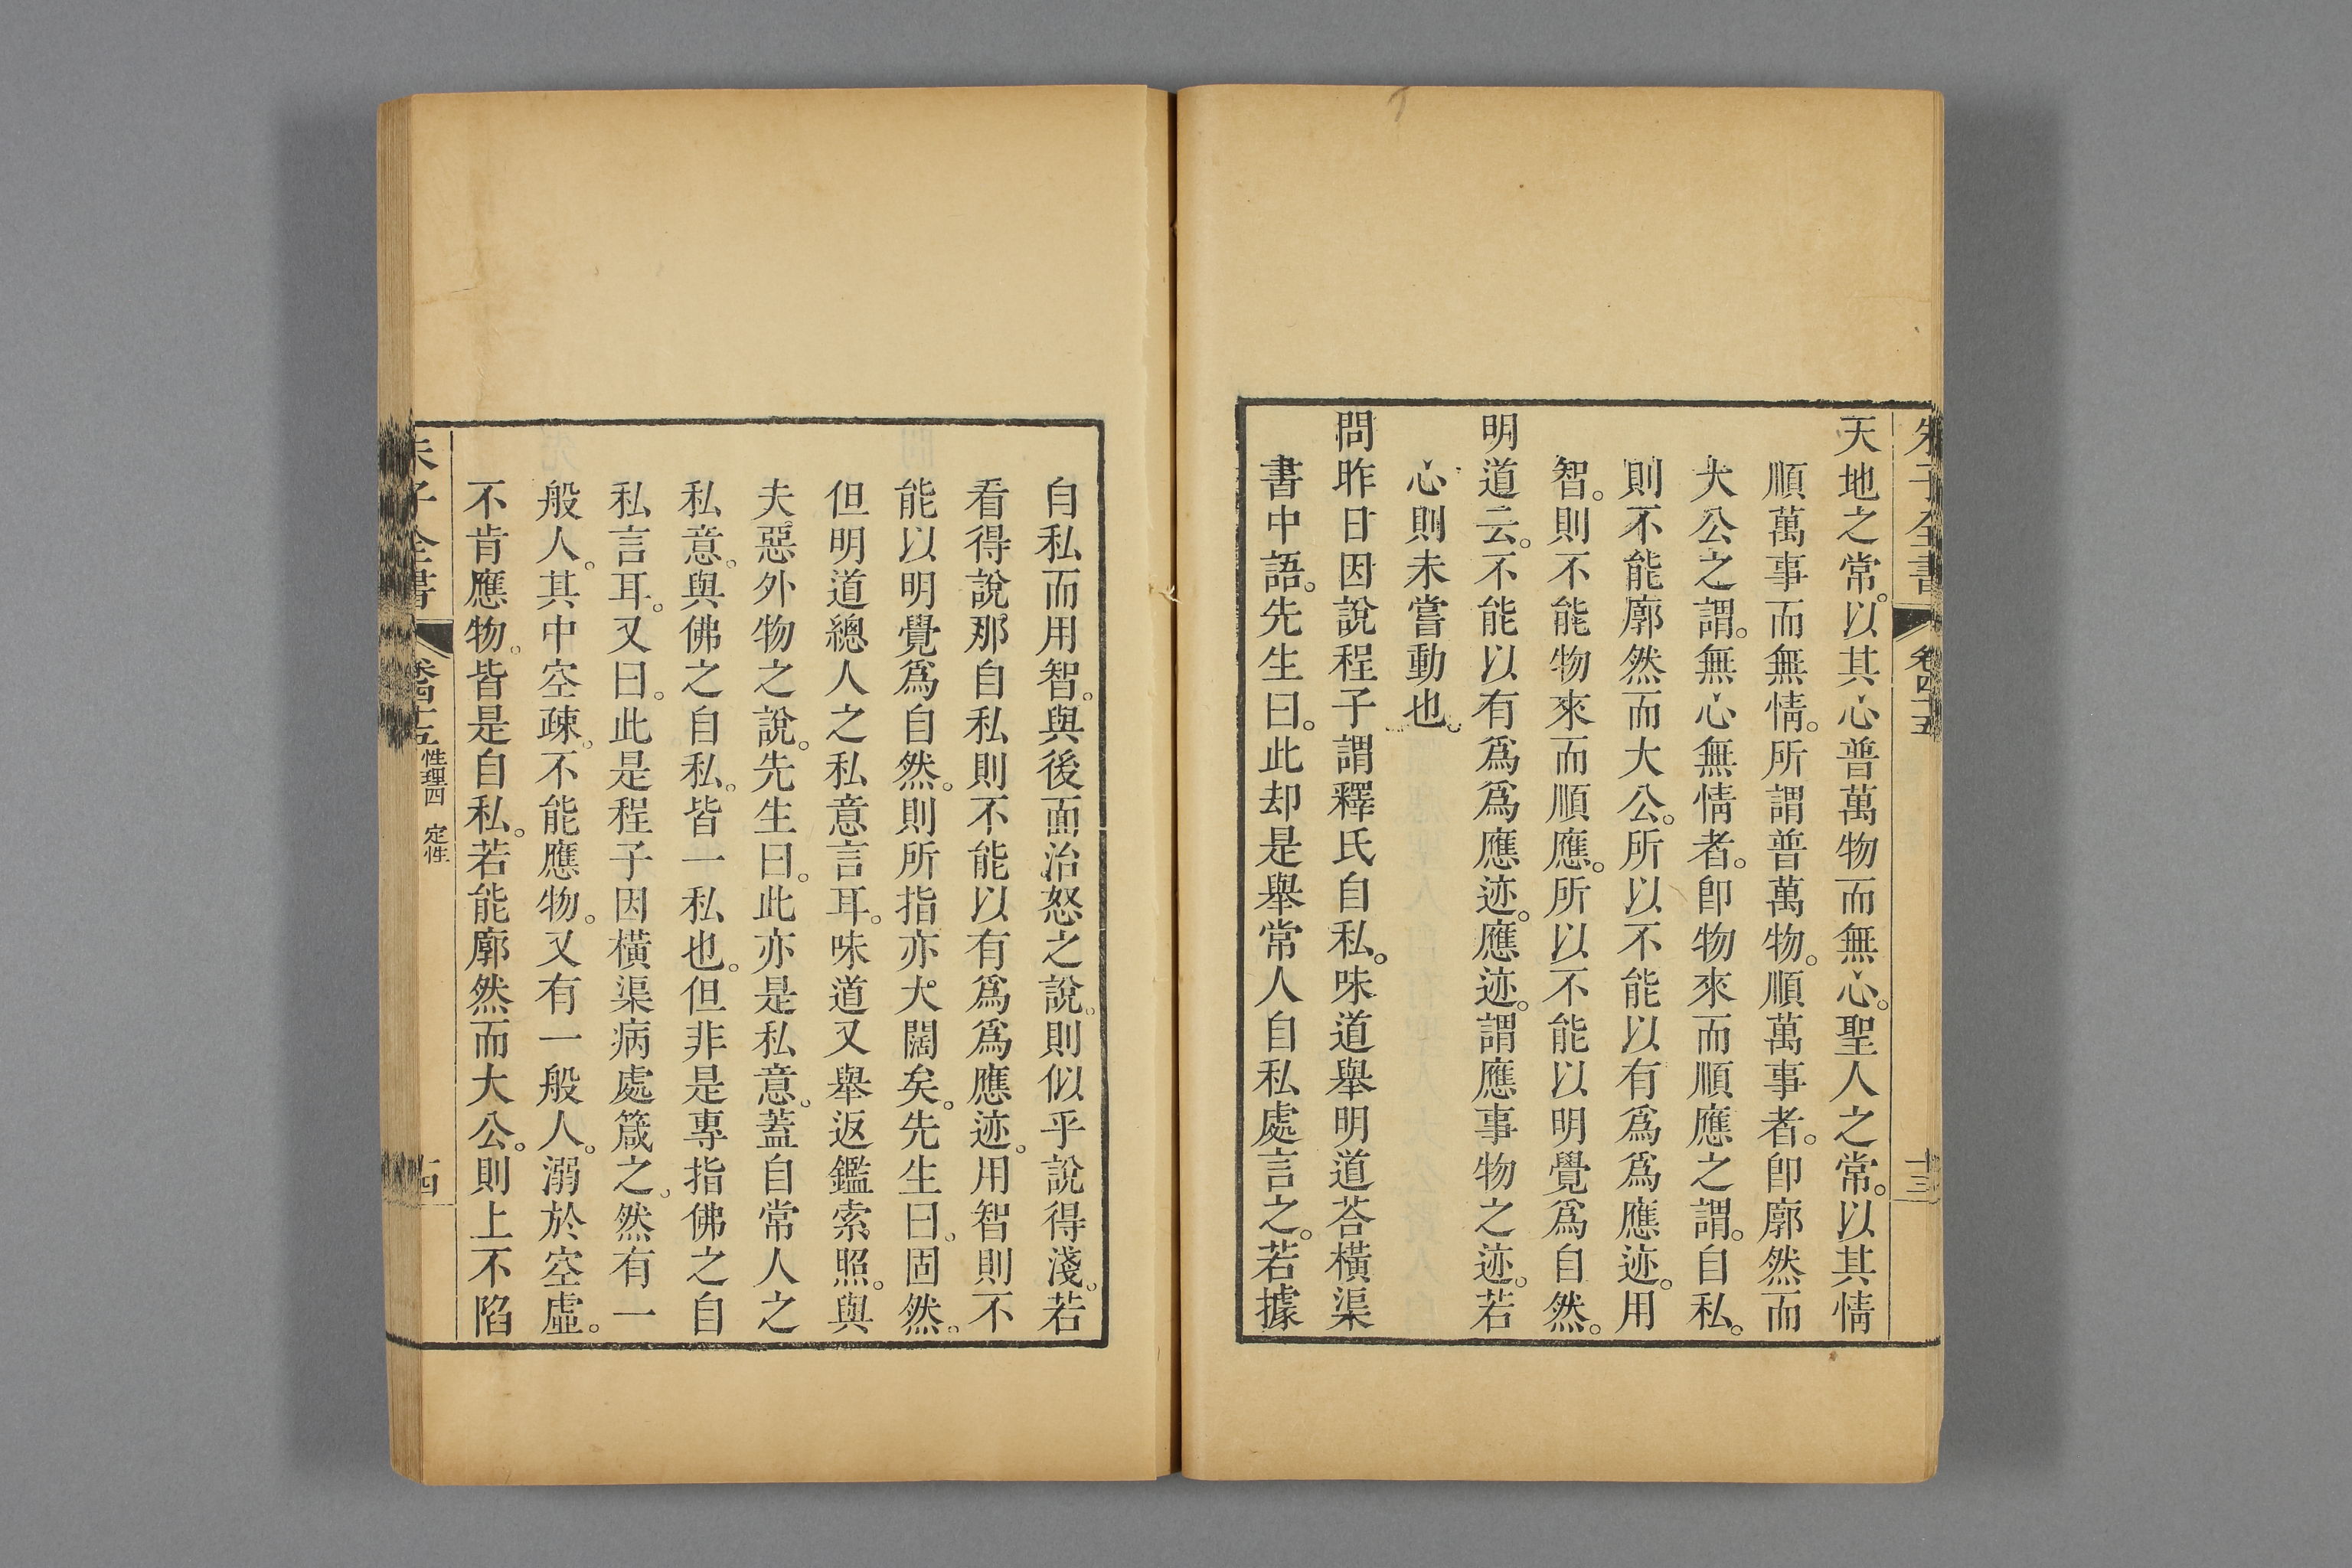 朱子全書 卷四十五 十三
天地之常。以其心普萬物而無心。聖人之常。以其情
順萬事而無情。所謂普萬物。順萬事者。卽廓然而
大公之謂。無心無情者。卽物來而順應之謂。自私。
則不能廓然而大公。所以不能以有爲爲應迹。用
智。則不能物來而順應。所以不能以明覺爲自然。
明道云。不能以有爲爲應迹。應迹。謂應事物之迹。若
心則未嘗動也。
問昨日因說程子謂釋氏自私。味道舉明道荅橫渠
書中語。先生曰。此却是舉常人自私處言之。若據
自私而用智。與後面治怒之說。則似乎說得淺。若
看得說那自私則不能以有爲爲應迹。用智則不
能以明覺爲自然。則所指亦大闊矣。先生曰。固然。
但明道總人之私意言耳。味道又舉返鑑索照。與
夫惡外物之說。先生曰。此亦是私意。蓋自常人之
私意。與佛之自私。皆一私也。但非是專指佛之自
私言耳。又曰。此是程子因橫渠病處箴之。然有一
般人。其中空疎。不能應物。又有一般人。溺於空虛。
不肯應物。皆是自私。若能廓然而大公。則上不陷
朱子全書 卷四十五 性理四 定性 十四